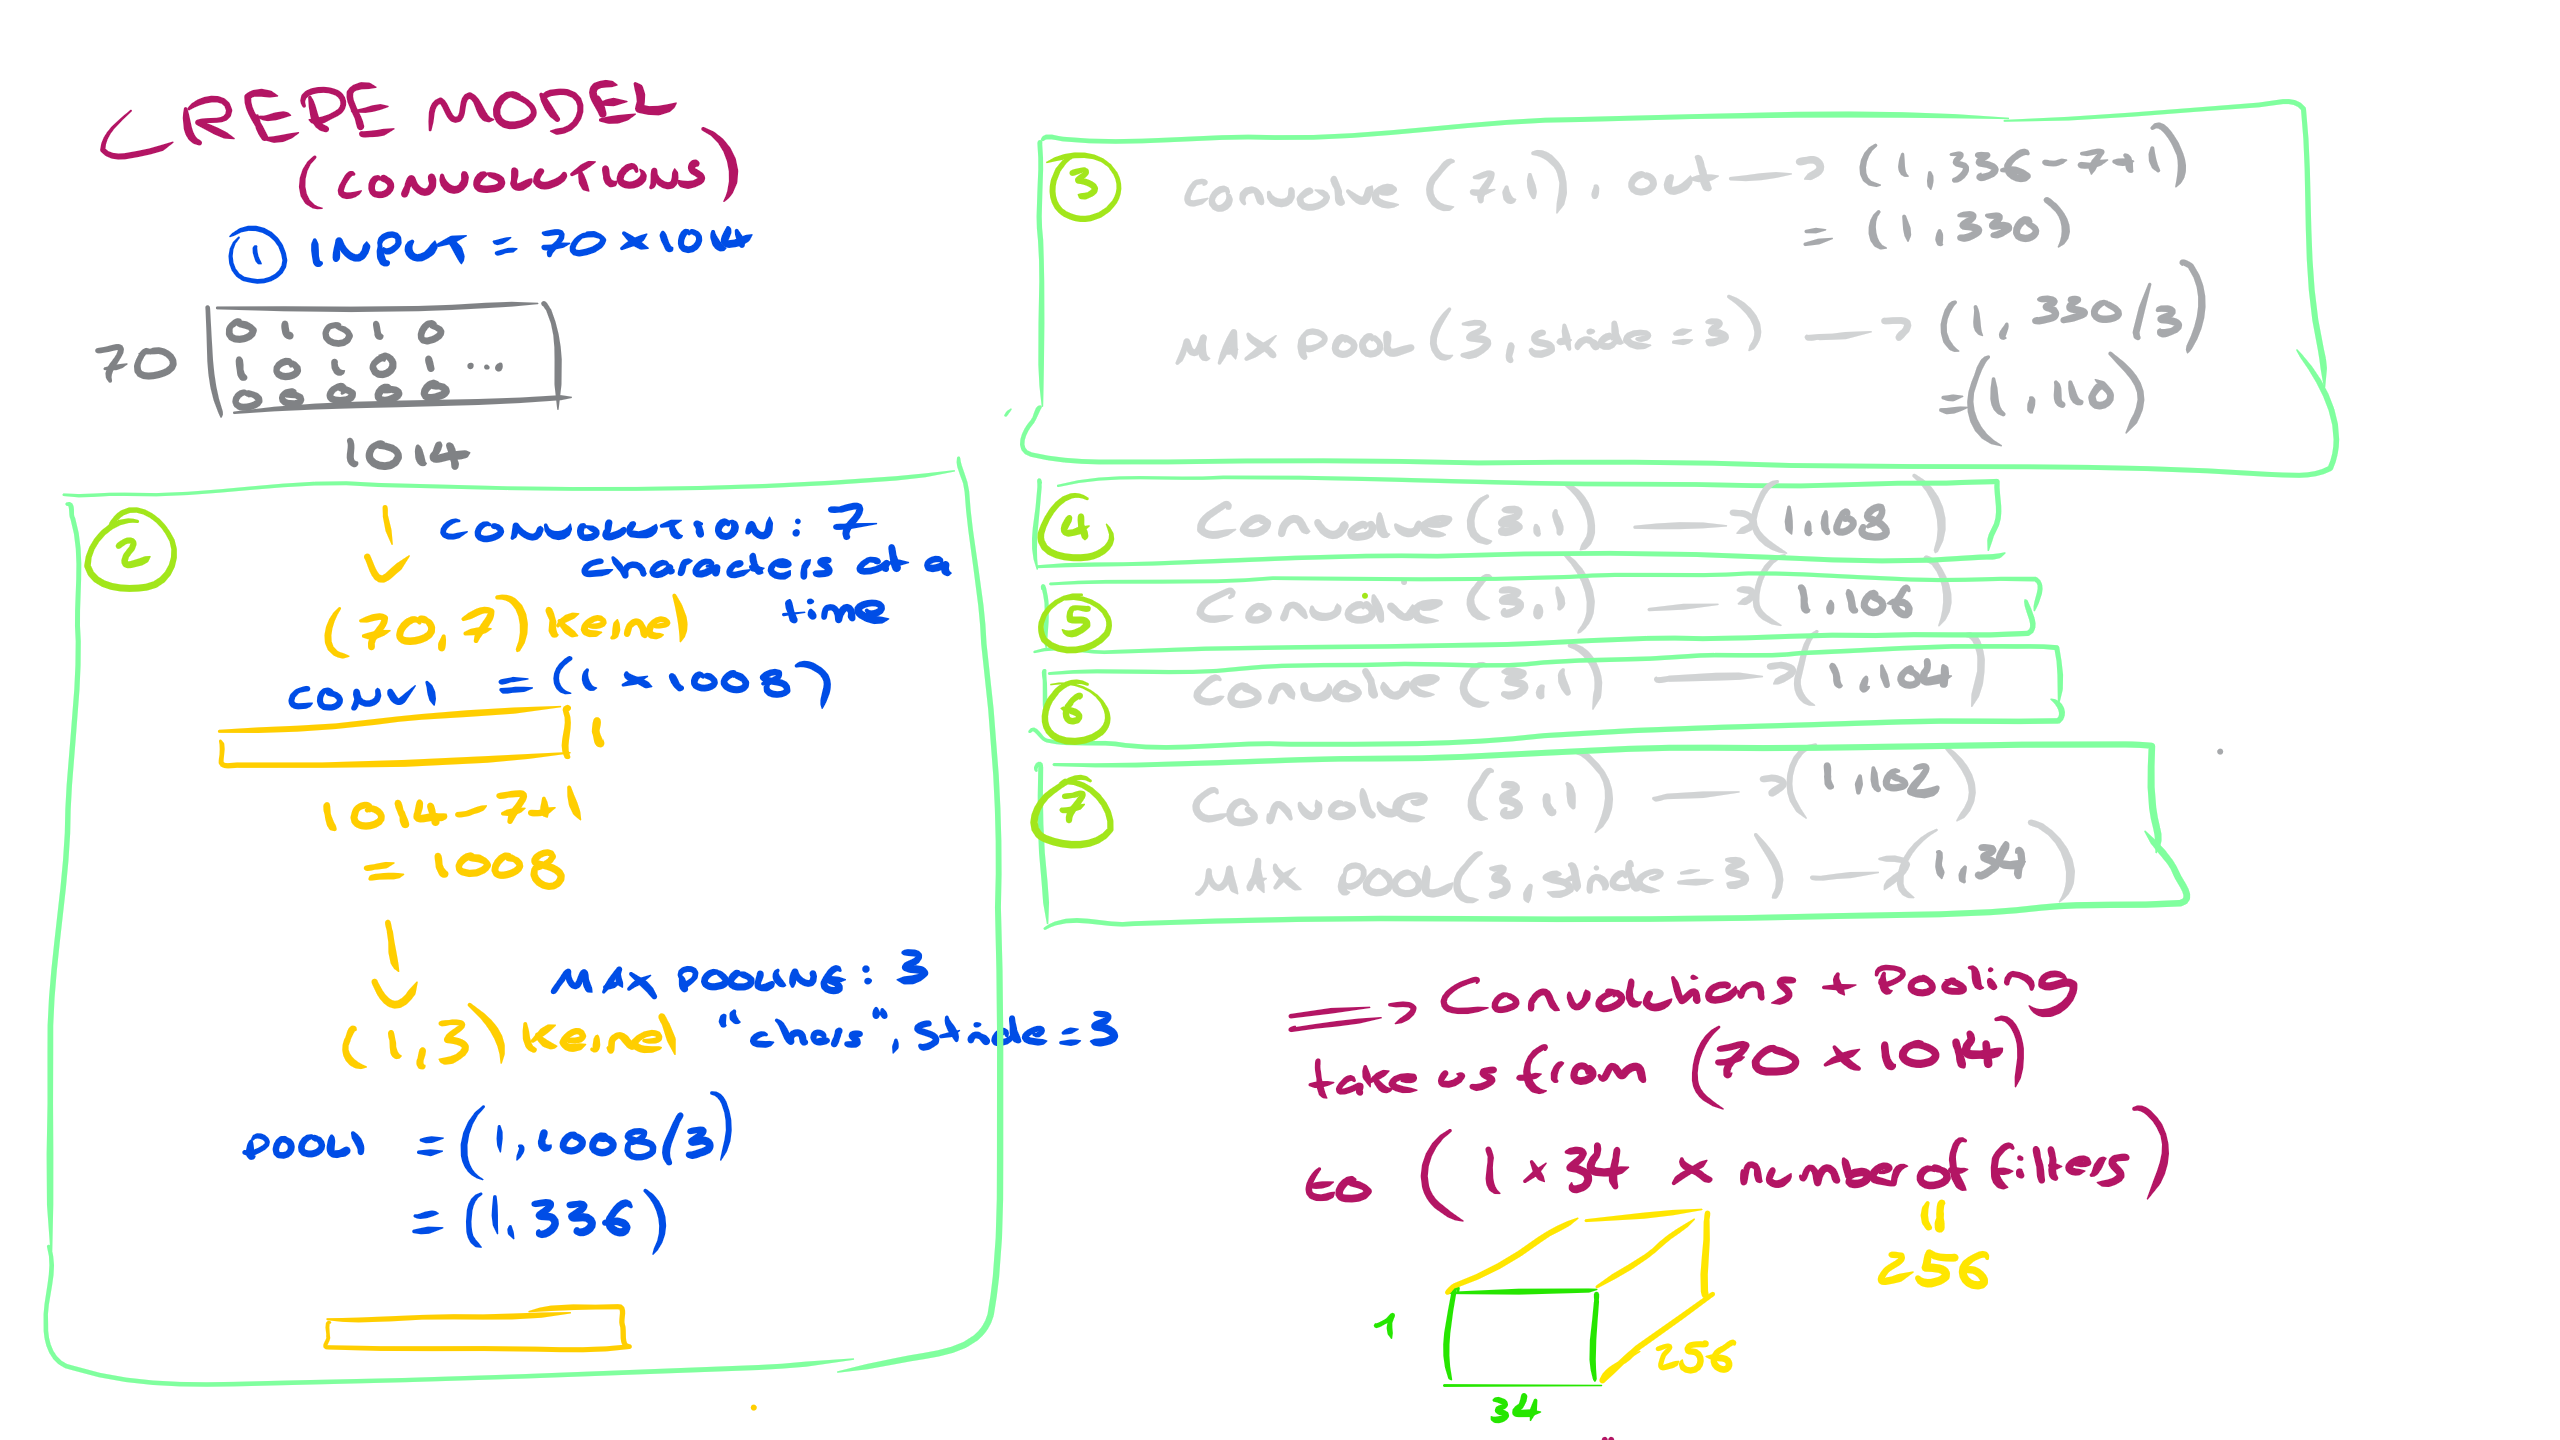 CREPE MODEL
(CONVOLUTIONS)
① INPUT = 70 × 1014
0 1 0 1 0
70
1 0 1 0 1 ...
0 0 0 0 0
1014
②
CONVOLUTION: 7
characters at a
time
(70,7) kernel
CONV1 = (1 × 1008)
1
1014-7+1
= 1008
MAX POOLING: 3
(1,3) kernel "chars", stride=3
POOL1 = (1,1008/3)
= (1,336)
③ Convolve (7,1), out → (1,336-7+1)
= (1,330)
MAX POOL (3, stride=3) → (1, 330/3)
=(1,110)
④ Convolve (3,1) → (1,108)
⑤ Convolve (3,1) → (1,106)
⑥ Convolve (3,1) → (1,104)
⑦ Convolve (3,1) → (1,102)
MAX POOL(3,stride=3) → (1,34)
⟹ Convolutions + Pooling
take us from (70 × 1014)
to (1 × 34 × number of filters)
=
256
1
256
34